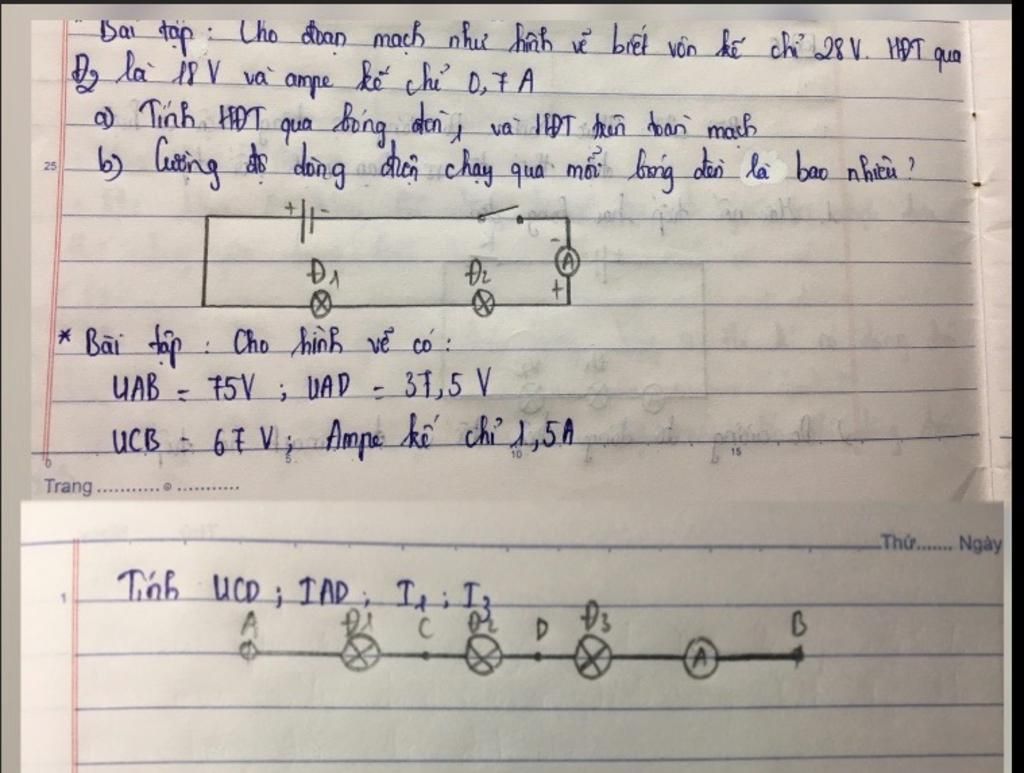 * Bài tập : Cho đoạn mạch như hình vẽ biết vôn kế chỉ 28V. HĐT qua
Đ2 là 18V và ampe kế chỉ 0,7A
a) Tính HĐT qua bóng đèn, và HĐT trên toàn mạch
25
b) Cường độ dòng điện chạy qua mỗi bóng đèn là bao nhiêu?
+ -
-
A
Đ1 Đ2
+
* Bài tập : Cho hình vẽ có :
UAB = 75V ; UAD = 37,5 V
UCB = 67 V; Ampe kế chỉ 1,5A
0 5 10 15
Trang ........... ...........
Thứ....... Ngày
1
Tính UCD ; IAD ; I1 ; I3
A Đ1 C Đ2 D Đ3 B
A